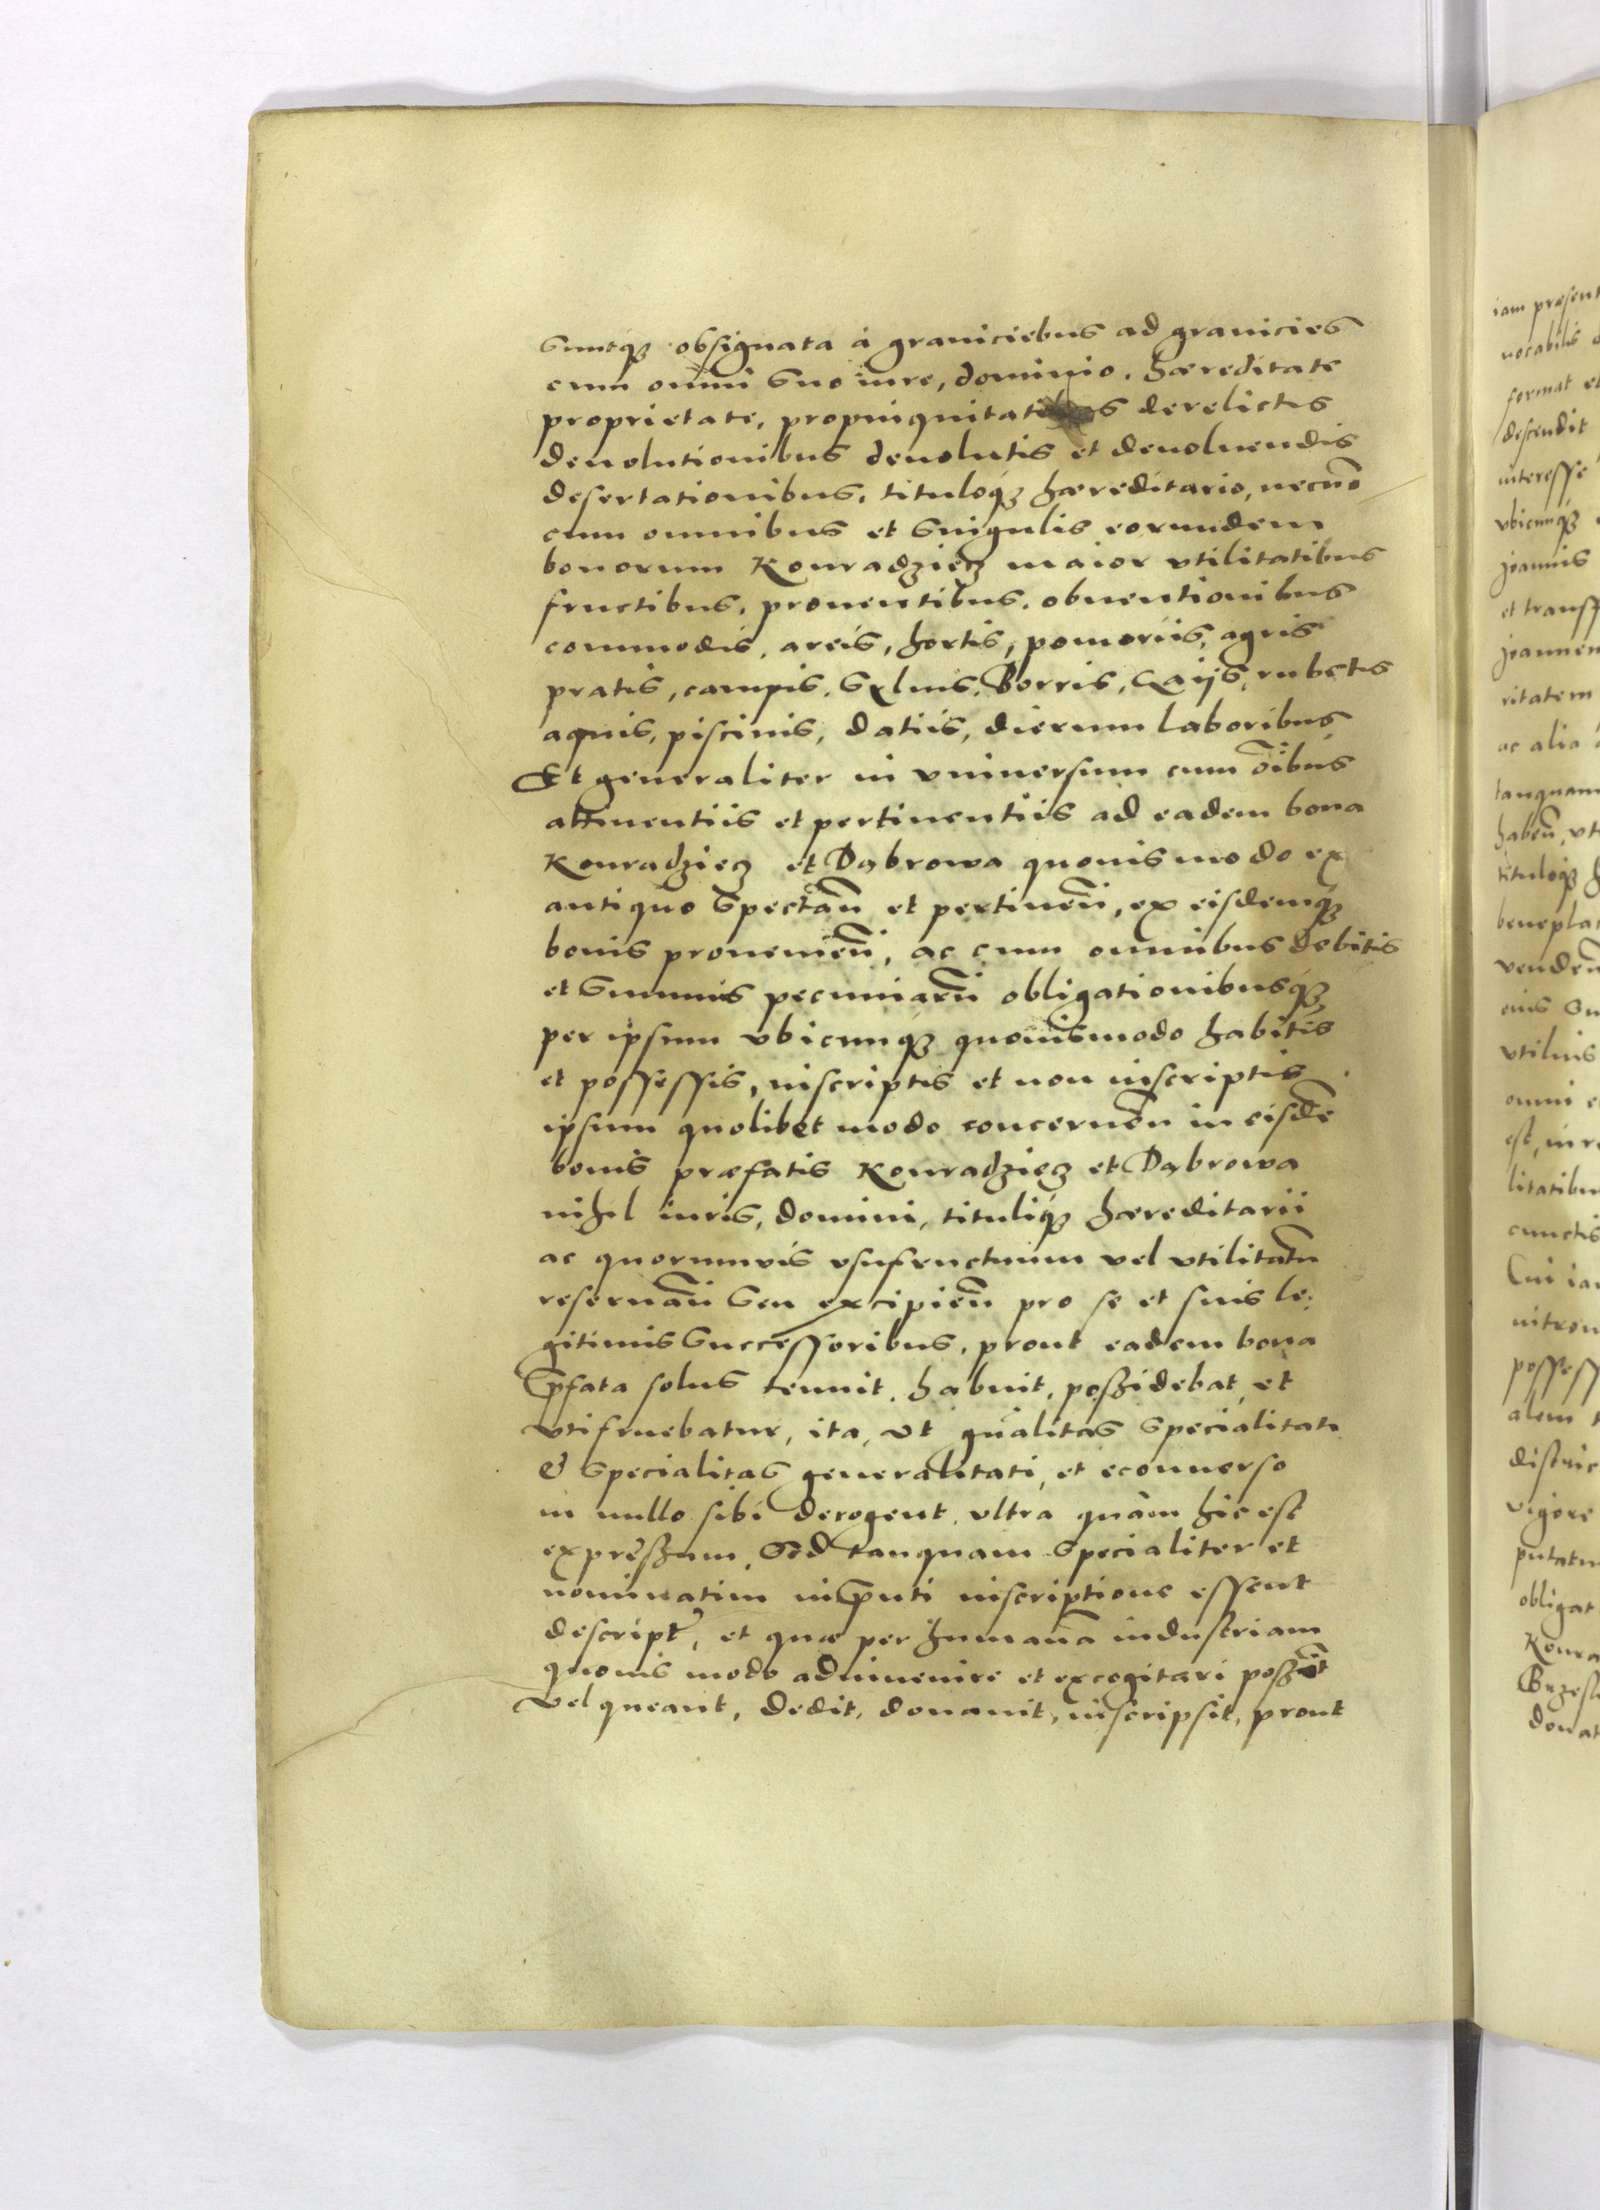 suntq₃ obsignata à graniciebus ad granicies
cum omni suo iure, dominio, hæreditate
proprietate, propinquitatibus derelictis
deuolutionibus deuolutis et deuoluendis
desertationibus, tituloq₃ hæreditario, necnō
cum omnibus et singulis eorundem
bonorum Konradziecz maior vtilitatibus
fructibus, prouentibus, obuentionibus
commodis, areis, hortis, pomoriis, agris
pratis, campis, syluis, Borris, Gaijs, rubetis
aquis, piscinis, datiis, dierum laboribus
Et generaliter in vniuersum cum oībus
attinentiis et pertinentiis ad eadem bona
Konradziecz et Dąbrowa quouis modo ex
antiquo spectāń et pertineń, ex eisdemq₃
bonis prouenień, ac cum omnibus debitis
et summis pecuniarū obligationibusq₃
per ipsum vbicunq₃ quouismodo habitis
et possessis, inscriptis et non inscriptis
ipsum quolibet modo concerneń in eisdē
bonis præfatis Konradziecz et Dąbrowa
nihil iuris, domini, tituliq₃ hæreditarii
ac quorumuis vsufructuum vel vtilitatū
reseruań seu excipień pro se et suis le:
gitimis successoribus, prout eadem bona
p̄fata solus tenuit, habuit, possidebat, et
vtifruebatur, ita, vt gn̄alitas specialitati
& specialitas generalitati, et econuerso
in nullo sibi derogent, vltra quàm hic est
expressum, Sed tanquam specialiter et
nominatim in p̄nti inscriptione essent
descripte, et quæ per humanā industriam
quouis modo adinuenire et excogitari possūt
vel queant, dedit, donauit, inscripsit, prout
iam present
uocabilis
format et
descendit
interesse
vbicunq₃
Joannis
et transf
Joannem
ritatem
ac alia
tanquam
habeń, vti
tituloq₃ h
beneplac
vendeń
eius su
vtilius
omni e
est, in r
litatibus
cunctis
Cui ia
possess
alem
distric
vigore
putatu
obligat
Konra
Brzesc
donat